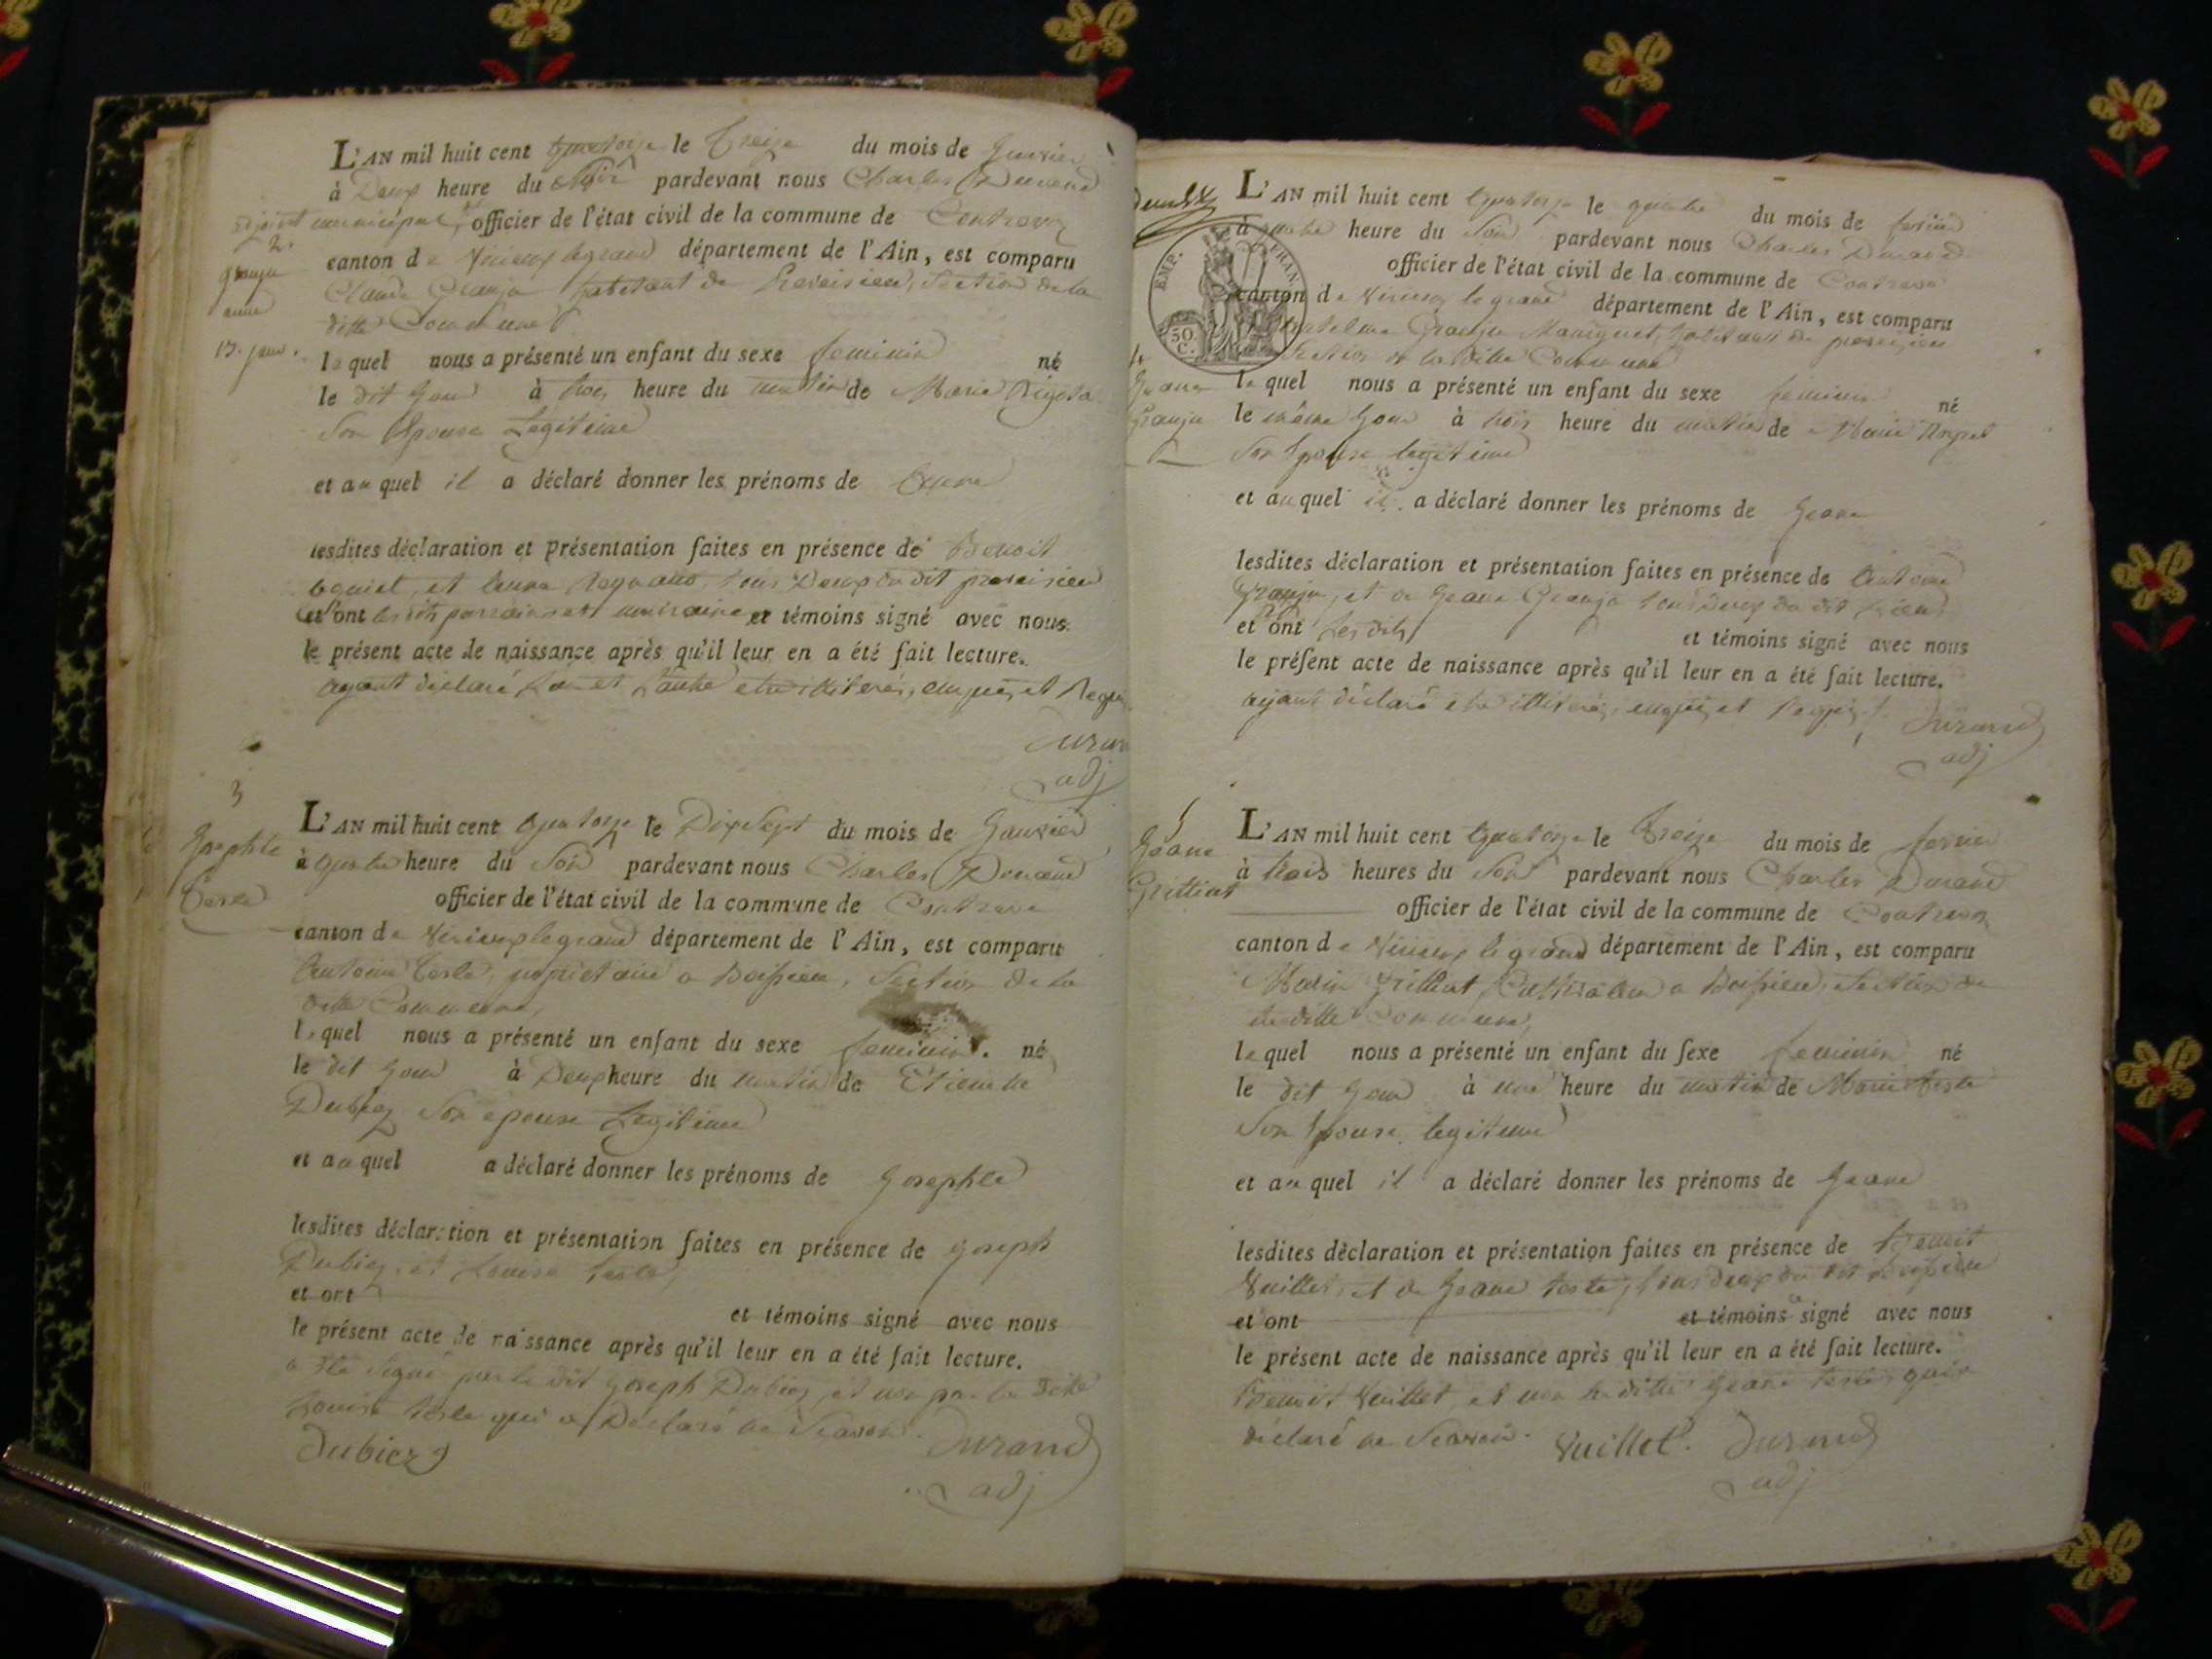 L'AN mil huit cent quatorze le treize du mois de Janvier
à Deux heure du Soir pardevant nous Charles Durand
adjoint municipal, officier de l'état civil de la commune de Contrevoz
canton de Virieux legrand département de l'Ain, est comparu
Claude Granja habitant de Preveisieu, Section de la
ditte Commune
lequel nous a présenté un enfant du sexe feminin né
le dit Jour à trois heure du matin de Marie
Son Epouse Legitime
et auquel il a déclaré donner les prénoms de
lesdites déclaration et présentation faites en présence de Benoit
et tous Deux du dit
et ont et témoins signé avec nous
le présent acte de naissance après qu'il leur en a été fait lecture.
ayant déclaré L'un et L'autre etre illiterés, enquis et Requis
Durand
adj
2.
granja
anne
13. janv.
3
Josephte
Teste
L'AN mil huit cent quatorze le Dix Sept du mois de Janvier
à quatre heure du Soir pardevant nous Charles Durand
officier de l'état civil de la commune de Contrevoz
canton de Virieux legrand département de l'Ain, est comparu
Antoine Teste, propriétaire a Boissieu, Section de la
ditte Commune,
lequel nous a présenté un enfant du sexe feminin. né
le dit Jour à Deux heure du matin de Etiennette
Dubiez Son epouse Legitime
et auquel a déclaré donner les prénoms de Josephte
lesdites déclaration et présentation faites en présence de Joseph
Dubiez, et Louise teste,
et ont
et témoins signé avec nous
le présent acte de naissance après qu'il leur en a été fait lecture.
a été signé par le dit Joseph Dubiez, et non par la ditte
Louise teste qui a Déclaré ne Scavoir.
Dubiez
Durand
adj
EMP. FRAN.
50 C.
L'AN mil huit cent quatorze le quatre du mois de fevrier
à quatre heure du Soir pardevant nous Charles Durand
officier de l'état civil de la commune de Contrevoz
canton de Virieux le grand département de l'Ain, est comparu
Granja habitant de
Section de la ditte Commune
lequel nous a présenté un enfant du sexe feminin né
le même Jour à trois heure du matin de Marie
Son Epouse legitime
et auquel il a déclaré donner les prénoms de Jeane
lesdites déclaration et présentation faites en présence de Antoine
Granja, et de Jeane Granja tous Deux du dit Lieu
et ont Lesdits et témoins signé avec nous
le présent acte de naissance après qu'il leur en a été fait lecture.
ayant déclaré etre illiterés, enquis et requis.
Durand
adj
Jeane
Granja
5
Jeane
Grilliat
L'AN mil huit cent quatorze le treize du mois de fevrier
à trois heures du Soir pardevant nous Charles Durand
officier de l'état civil de la commune de Contrevoz
canton de Virieux le grand département de l'Ain, est comparu
Grilliat, Cultivateur a Boissieu, Section de
la ditte Commune,
lequel nous a présenté un enfant du sexe feminin né
le dit Jour à une heure du matin de Marie teste
Son Epouse legitime
et auquel il a déclaré donner les prénoms de Jeane
lesdites déclaration et présentation faites en présence de Benoit
Vuillet, et de Jeane teste, tous deux du dit Boissieu
et ont et témoins signé avec nous
le présent acte de naissance après qu'il leur en a été fait lecture.
Benoit Vuillet, et non la ditte Jeane teste qui a
déclaré ne Scavoir.
Vuillet.
Durand
adj